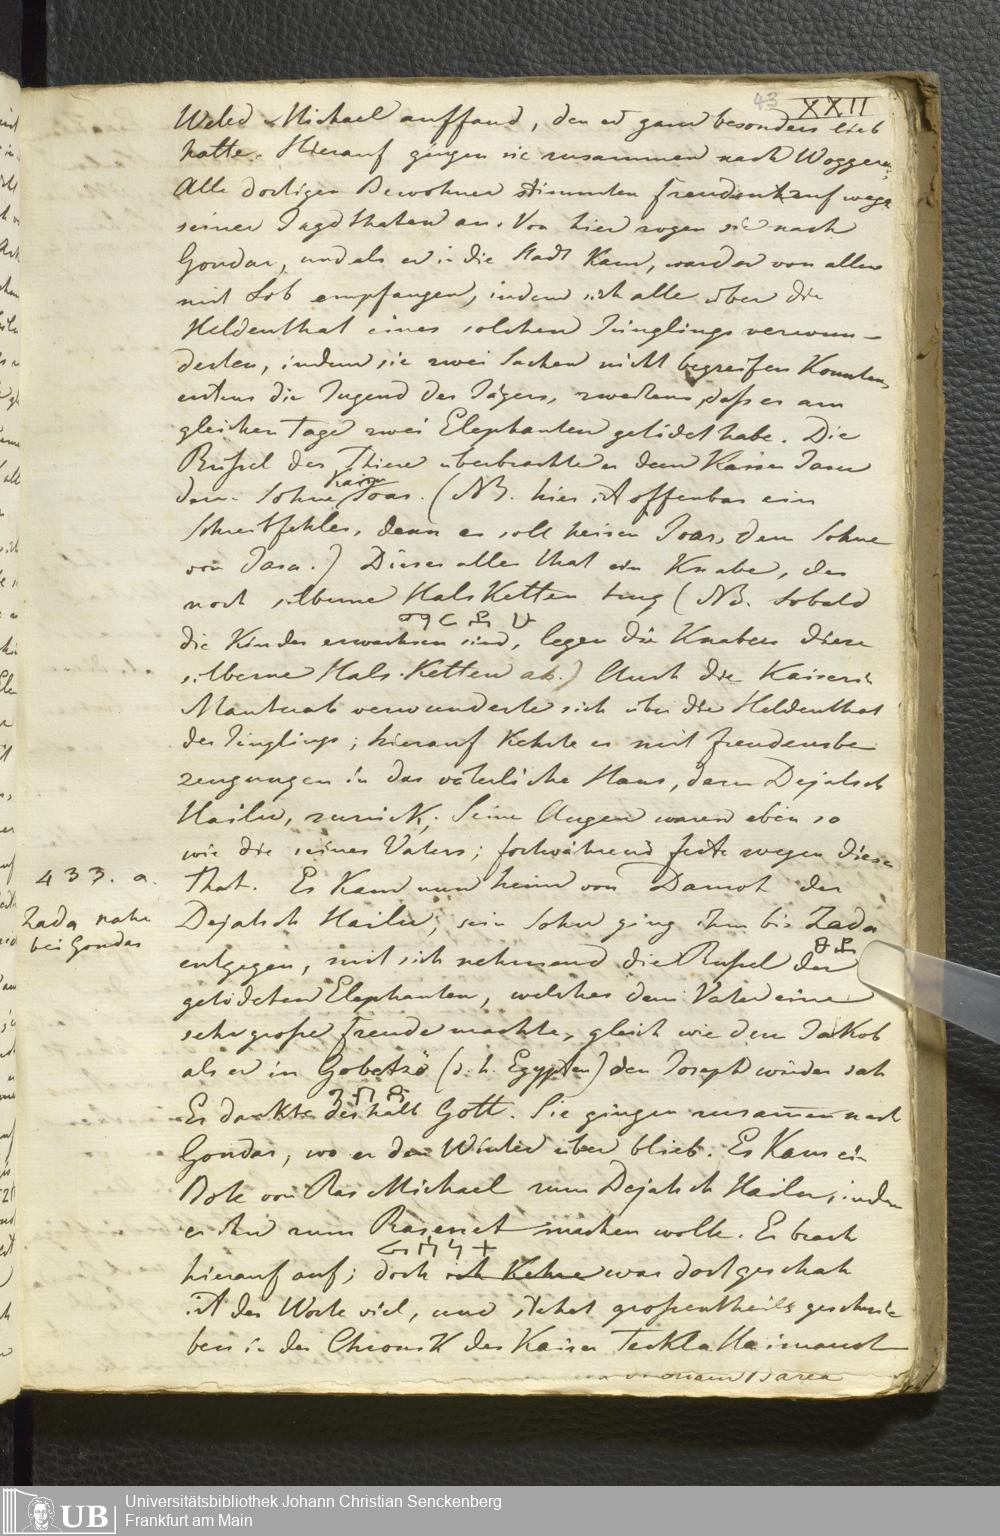 43 XXII
Weled Michael auffand, den er ganz besonders lieb
hatte. Hierauf gingen sie zusammen nach Woggera;
Alle dortigen Bewohner stimmten Freudenruf wegen
seiner Jagdthaten an. Von hier zogen sie nach
Gondar, und als er in die Stadt kam, ward er von allen
mit Lob empfangen, indem sich alle über die
Heldenthat eines solchen Jünglings verwun-
derten, indem sie zwei Sachen nicht begreifen konnten,
erstens die Jugend des Jägers, zweitens, dass er am
gleichen Tage zwei Elephanten getödet habe. Die
Rüssel der Thiere überbrachte er dem Kaiser Jasu
dem Sohne Joas. (NB. hier ist offenbar ein
Schreibfehler, denn es soll heissen Joas, dem Sohne
von Jasu.) Dieses alles that ein Knabe, der
noch silberne Halsketten trug (NB. Sobald
die Kinder erwachsen sind, legen die Knaben diese
silberne Hals-Ketten ab.) Auch die Kaiserin
verwunderte sich über die Heldenthat
des Jünglings; hierauf kehrte er mit Freudensbe
zeugungen in das väterliche Haus, dem Dejatsch
Hailu, zurück; Seine Augen waren eben so
wie die seines Vaters; fortwährend Feste wegen dieser
433. a. That. Es kam nun heim von Damot der
Zada nahe bei Gondar
Dejatsch Hailu; sein Sohn ging ihm bis Zada
entgegen, mit sich nehmend die Rüssel der
getödeten Elephanten, welches dem Vater eine
sehr grosse Freude machte, gleich wie dem Jakob
als er in (d. h. Egypten) den Joseph wieder sah
Er dankte deshalb Gott. Sie gingen zusammen nach
Gondar, wo er den Winter über blieb. Es kam ein
Bote von Ras Michael zum Dejatsch Hailu, indem
er ihn zum machen wolle. Er brach
hierauf auf; doch ich Kehre was dort geschah
ist der Worte viel, und stehet grossentheils geschrie
ben in der Chronik des Kaiser Teckla Haimanot
Universitätsbibliothek Johann Christian Senckenberg
Frankfurt am Main
UB